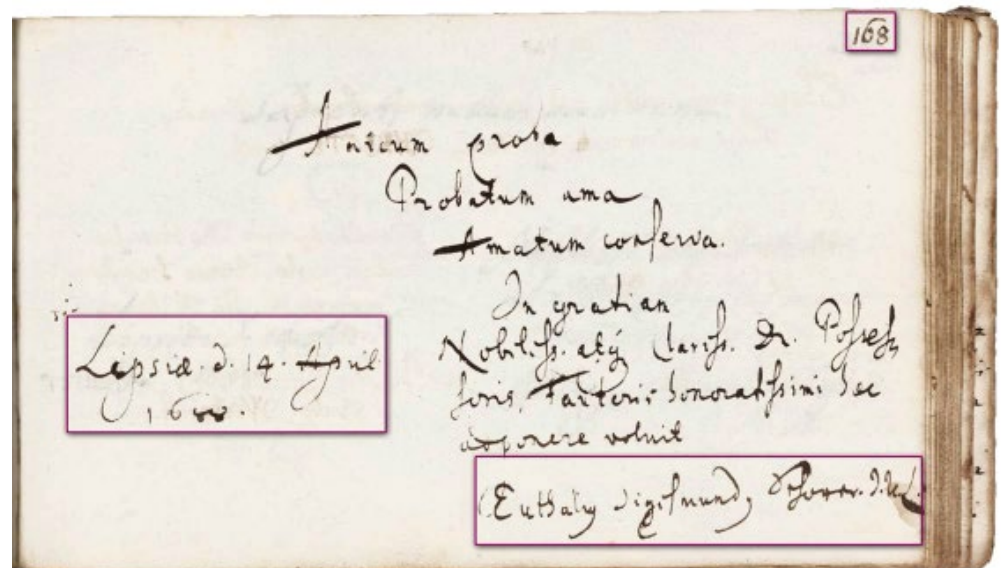 168
Amicum proba
Probatum ama
Amatum conserva.
In gratiam
Nobiliss. atq Clariss. Dn. Posses
soris, Fautoris honoratissimi hæc
apponere voluit
Lipsiæ. d. 14. April
Euthaly Sigismund